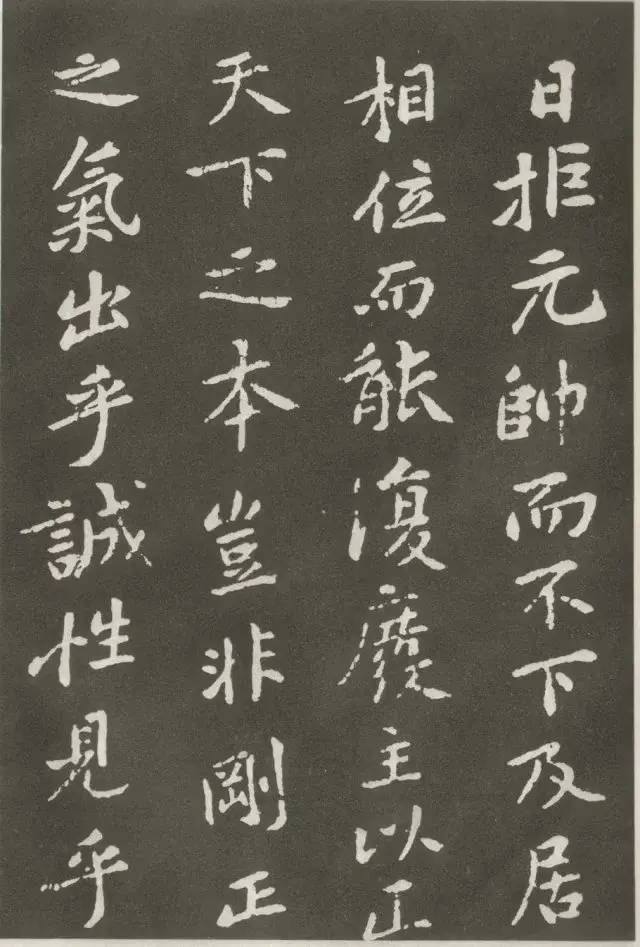 日拒元帥而不下及居
相位而能復廢主以正
天下之本豈非剛正
之氣出乎誠性見乎